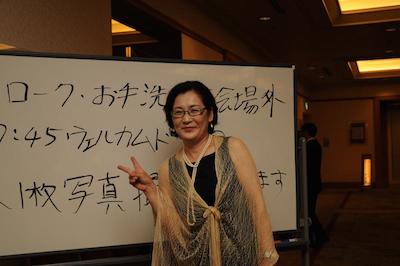 ローク・お手洗 会場外
7:45ウェルカムド
人1枚写真 ます